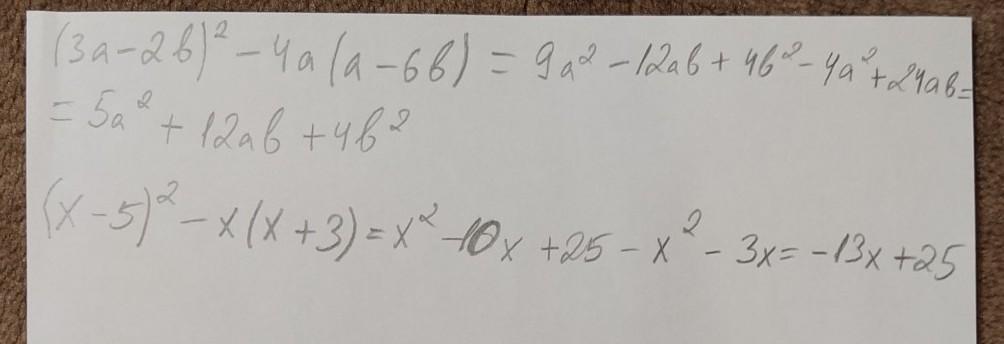 (3a-2b)² - 4a(a-6b) = 9a² - 12ab + 4b² - 4a² + 24ab =
= 5a² + 12ab + 4b²
(x-5)² - x(x+3) = x² - 10x + 25 - x² - 3x = -13x + 25